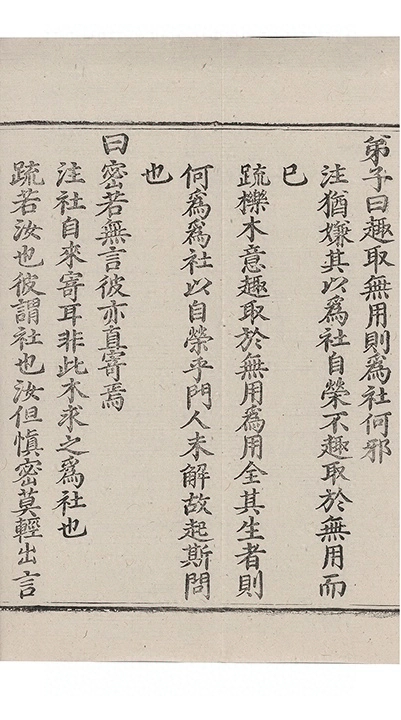 弟子曰趣取無用則爲社何邪
注猶嫌其以爲社自榮不趣取於無用而
已
疏櫟木意趣取於無用爲用全其生者則
何爲爲社以自榮乎門人未解故起斯問
也
曰密若無言彼亦直寄焉
注社自來寄耳非此木求之爲社也
疏若汝也彼謂社也汝但慎密莫輕出言